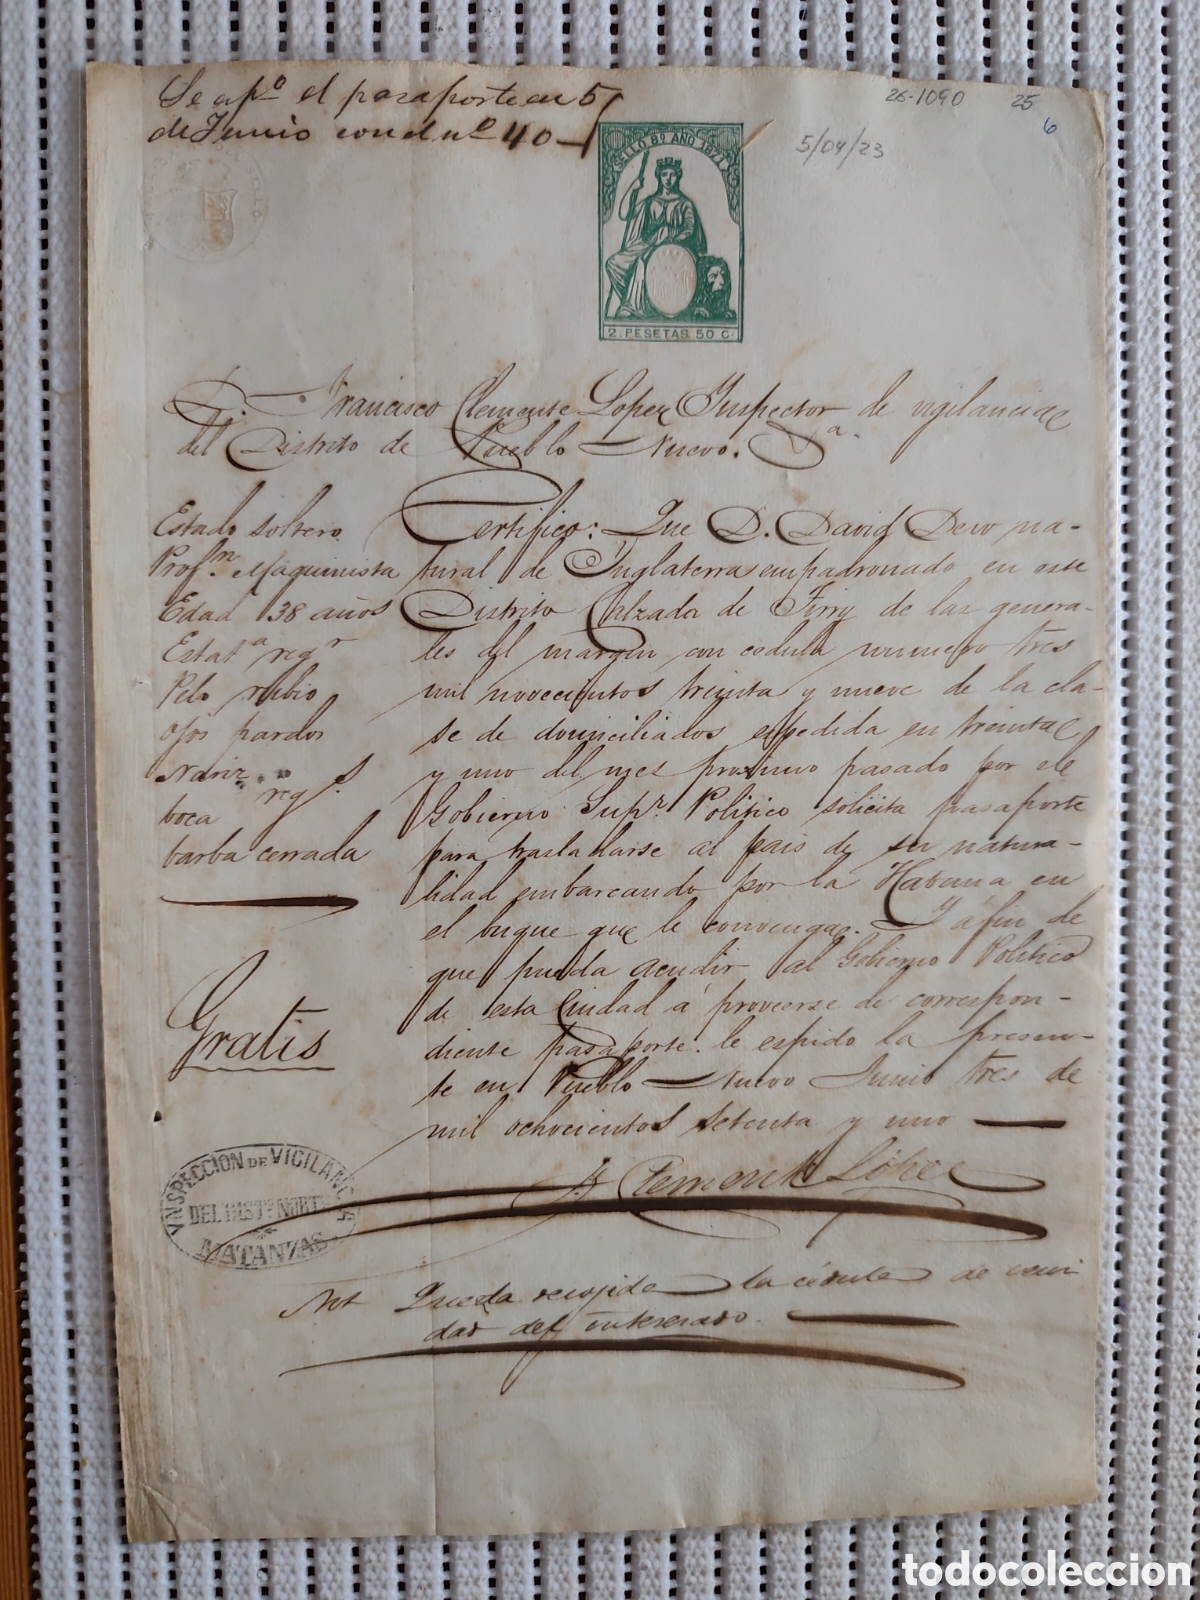 Se ap.º el pasaporte en 5
de Junio con el nº 40
26-1090
25
6
5/04/23
SELLO 8º AÑO 1871
2 PESETAS 50 C.
D. Francisco Clemente Lopez Inspector de vigilancia
del Distrito de Pueblo Nuevo. &.a
Estado soltero
Prof.n Maquinista
Edad 38 años
Estat.a reg.r
Pelo rubio
ojos pardos
Nariz
boca reg.s
barba cerrada
Gratis
Certifico: Que D. David Dew na-
tural de Inglaterra empadronado en este
Distrito Calzada de Tirry de las genera-
les del margen con cedula numero tres
mil novecientos treinta y nueve de la cla-
se de domiciliados espedida en treinta
y uno del mes proximo pasado por el
Gobierno Sup.r Politico solicita pasaporte
para trasladarse al pais de su natura-
lidad embarcando por la Habana en
el buque que le convenga. Y á fin de
que pueda acudir al Gobierno Politico
de esta Ciudad á proveerse de correspon-
diente pasaporte. le espido la presen-
te en Pueblo Nuevo Junio tres de
mil ochocientos setenta y uno
F. Clemente López
YNSPECCION DE VIGILANCIA
DEL DIST.º NORTE
MATANZAS
Not Queda recojida la cédula de vecin
dad del interesado.
todocoleccion